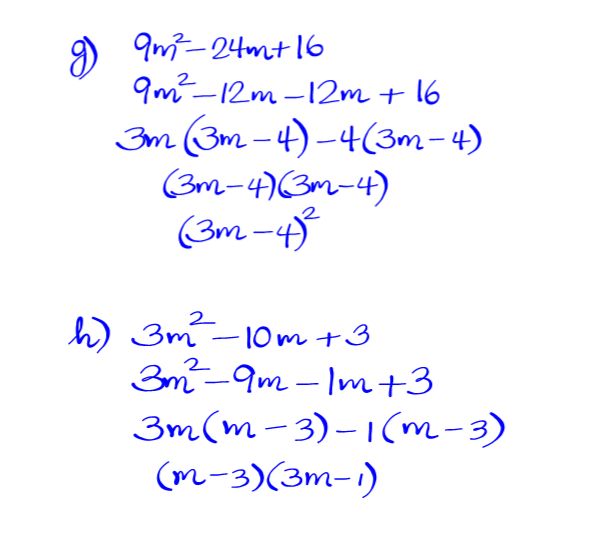 g) 9m²-24m+16
9m²-12m-12m+16
3m(3m-4)-4(3m-4)
(3m-4)(3m-4)
(3m-4)²
h) 3m²-10m+3
3m²-9m-1m+3
3m(m-3)-1(m-3)
(m-3)(3m-1)